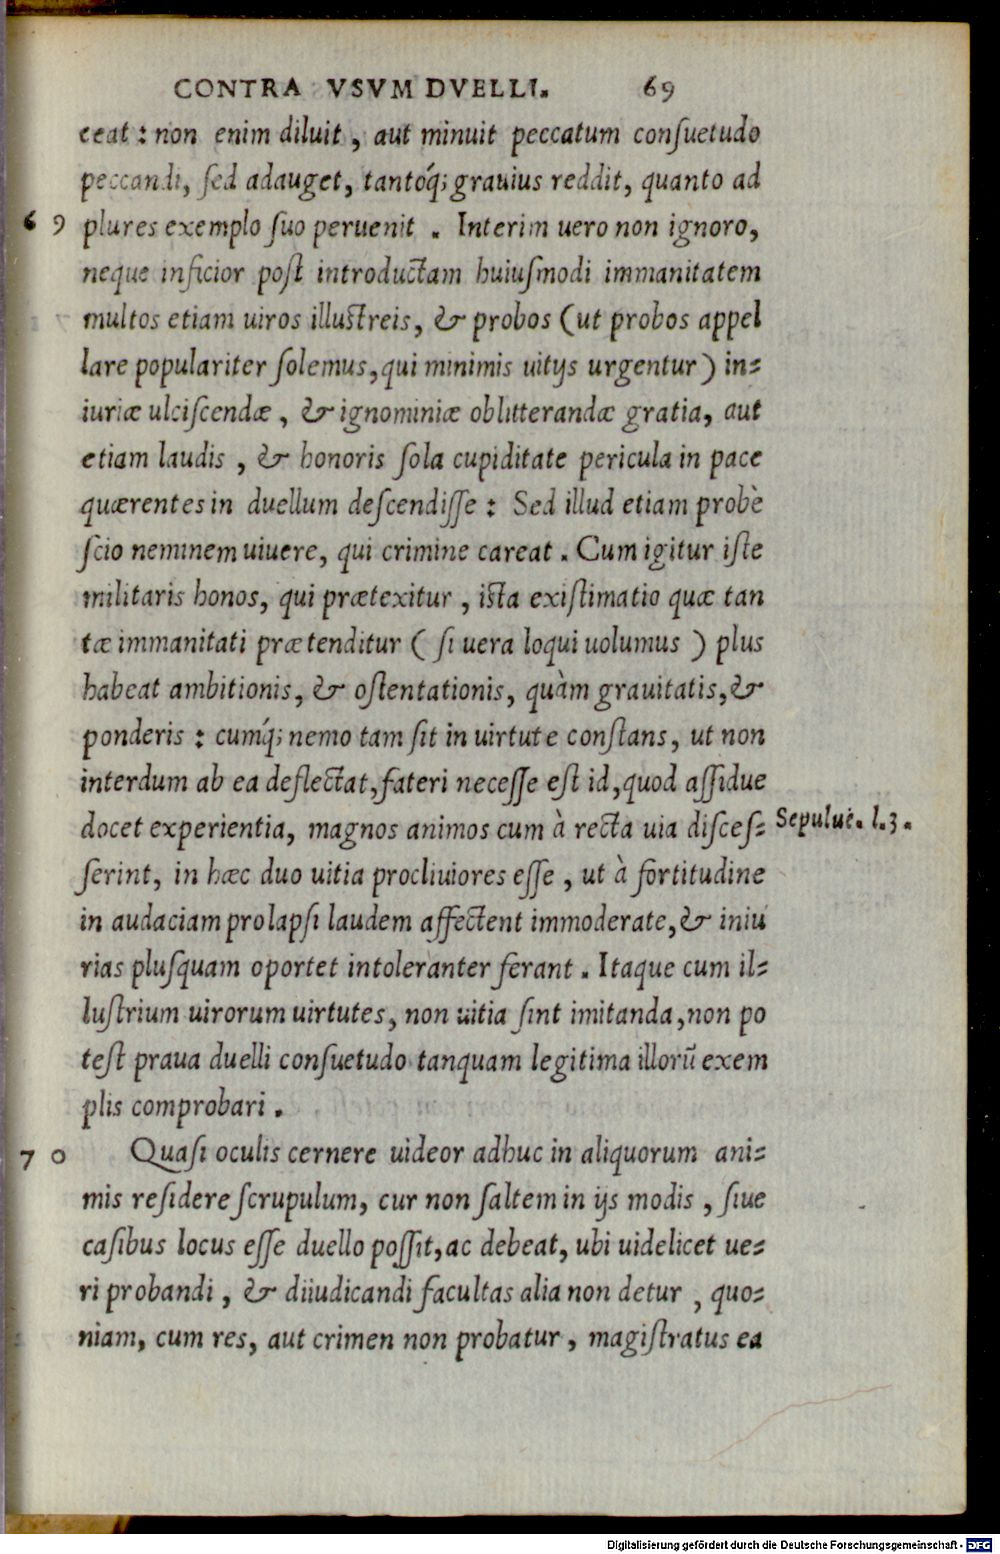 CONTRA VSVM DVELLI. 69
ceat : non enim diluit , aut minuit peccatum conſuetudo
peccandi, ſed adauget, tantóq́; grauius reddit, quanto ad
69 plures exemplo ſuo peruenit . Interim uero non ignoro,
neque inficior poſt introductam huiuſmodi immanitatem
multos etiam uiros illuſtreis, & probos (ut probos appel
lare populariter ſolemus, qui minimis uitijs urgentur) in-
iuriæ ulciſcendæ , & ignominiæ oblitterandæ gratia, aut
etiam laudis , & honoris ſola cupiditate pericula in pace
quærentes in duellum deſcendiſſe : Sed illud etiam probè
ſcio neminem uiuere, qui crimine careat . Cum igitur iſte
militaris honos, qui prætexitur , iſta exiſtimatio quæ tan
tæ immanitati prætenditur ( ſi uera loqui uolumus ) plus
habeat ambitionis, & oſtentationis, quàm grauitatis, &
ponderis : cumq́; nemo tam ſit in uirtute conſtans, ut non
interdum ab ea deflectat, fateri neceſſe eſt id, quod aſſidue
docet experientia, magnos animos cum à recta uia diſceſ- Sepulue. l.3.
ſerint, in hæc duo uitia procliuiores eſſe , ut à fortitudine
in audaciam prolapſi laudem affectent immoderate, & iniu
rias pluſquam oportet intoleranter ferant . Itaque cum il-
luſtrium uirorum uirtutes, non uitia ſint imitanda, non po
teſt praua duelli conſuetudo tanquam legitima illorũ exem
plis comprobari .
70 Quaſi oculis cernere uideor adhuc in aliquorum ani-
mis reſidere ſcrupulum, cur non ſaltem in ijs modis , ſiue
caſibus locus eſſe duello poſſit, ac debeat, ubi uidelicet ue-
ri probandi , & diiudicandi facultas alia non detur , quo-
niam, cum res, aut crimen non probatur , magiſtratus ea
Digitalisierung gefördert durch die Deutsche Forschungsgemeinschaft - DFG